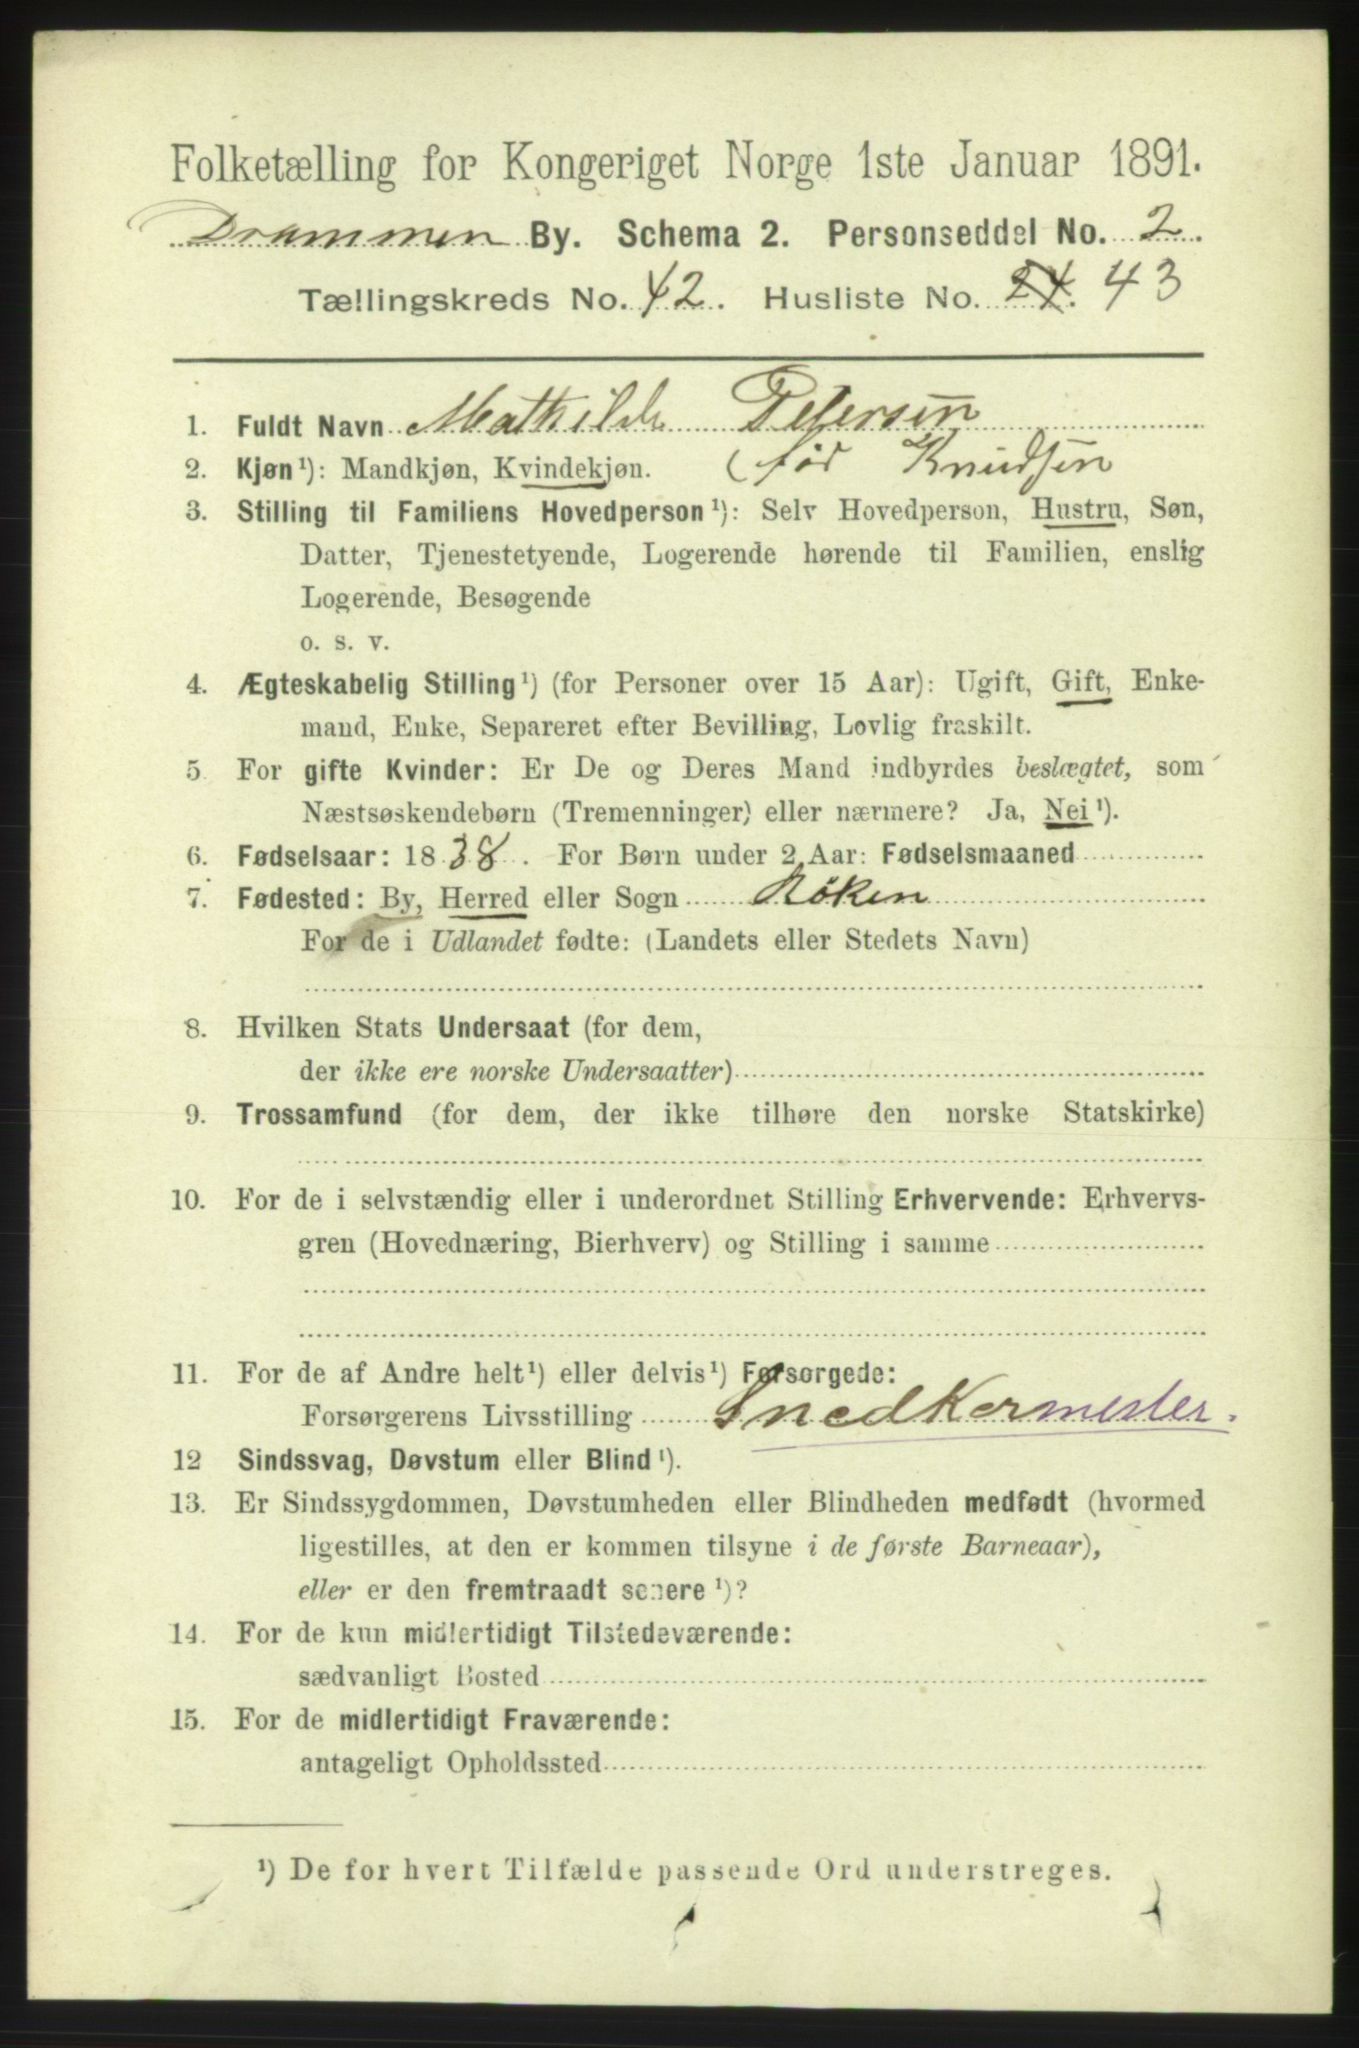 Folketælling for Kongeriget Norge 1ste Januar 1891.
Drammen By. Schema 2. Personseddel No. 2.
Tællingskreds No. 42. Husliste No. 24. 43
1. Fuldt Navn Mathilde Petersen
(før Knudsen
2. Kjøn¹): Mandkjøn, Kvindekjøn.
3. Stilling til Familiens Hovedperson¹): Selv Hovedperson, Hustru, Søn,
Datter, Tjenestetyende, Logerende hørende til Familien, enslig
Logerende, Besøgende
o. s. v.
4. Ægteskabelig Stilling¹) (for Personer over 15 Aar): Ugift, Gift, Enke-
mand, Enke, Separeret efter Bevilling, Lovlig fraskilt.
5 For gifte Kvinder: Er De og Deres Mand indbyrdes beslægtet, som
Næstsøskendebørn (Tremenninger) eller nærmere? Ja, Nei¹).
6. Fødselsaar: 1838. For Børn under 2 Aar: Fødselsmaaned
7. Fødested: By, Herred eller Sogn Røken
For de i Udlandet fødte: (Landets eller Stedets Navn)
8. Hvilken Stats Undersaat (for dem,
der ikke ere norske Undersaatter)
9. Trossamfund (for dem, der ikke tilhøre den norske Statskirke)
10. For de i selvstændig eller i underordnet Stilling Erhvervende: Erhvervs-
gren (Hovednæring, Bierhverv) og Stilling i samme
11. For de af Andre helt¹) eller delvis¹) Forsørgede:
Forsørgerens Livsstilling Snedkermester.
12 Sindssvag, Døvstum eller Blind¹).
13. Er Sindssygdommen, Døvstumheden eller Blindheden medfødt (hvormed
ligestilles, at den er kommen tilsyne i de første Barneaar),
eller er den fremtraadt senere¹)?
14. For de kun midlertidigt Tilstedeværende:
sædvanligt Bosted
15. For de midlertidigt Fraværende:
antageligt Opholdssted
¹) De for hvert Tilfælde passende Ord understreges.